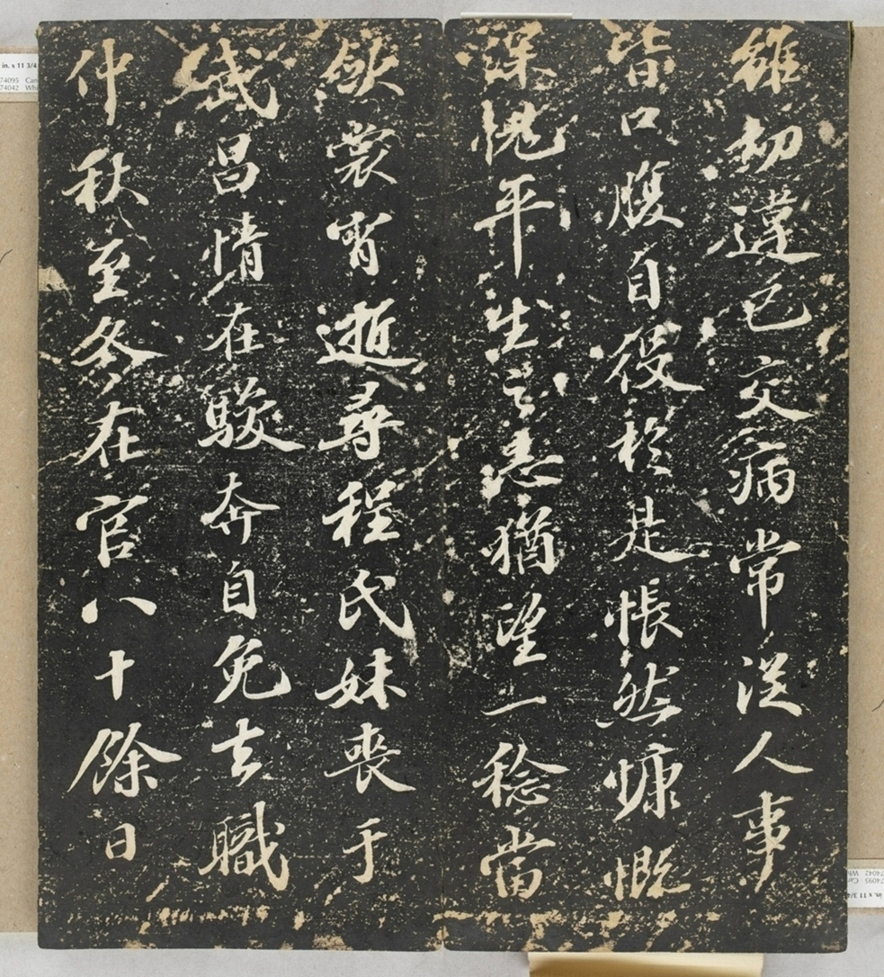 雖切違己交病常從人事
皆口腹自役於是悵然慷慨
深愧平生之志猶望一稔當
斂裳宵逝尋程氏妹喪于
武昌情在駿奔自免去職
仲秋至冬在官八十餘日
in. x 11 3/4
74095
74042